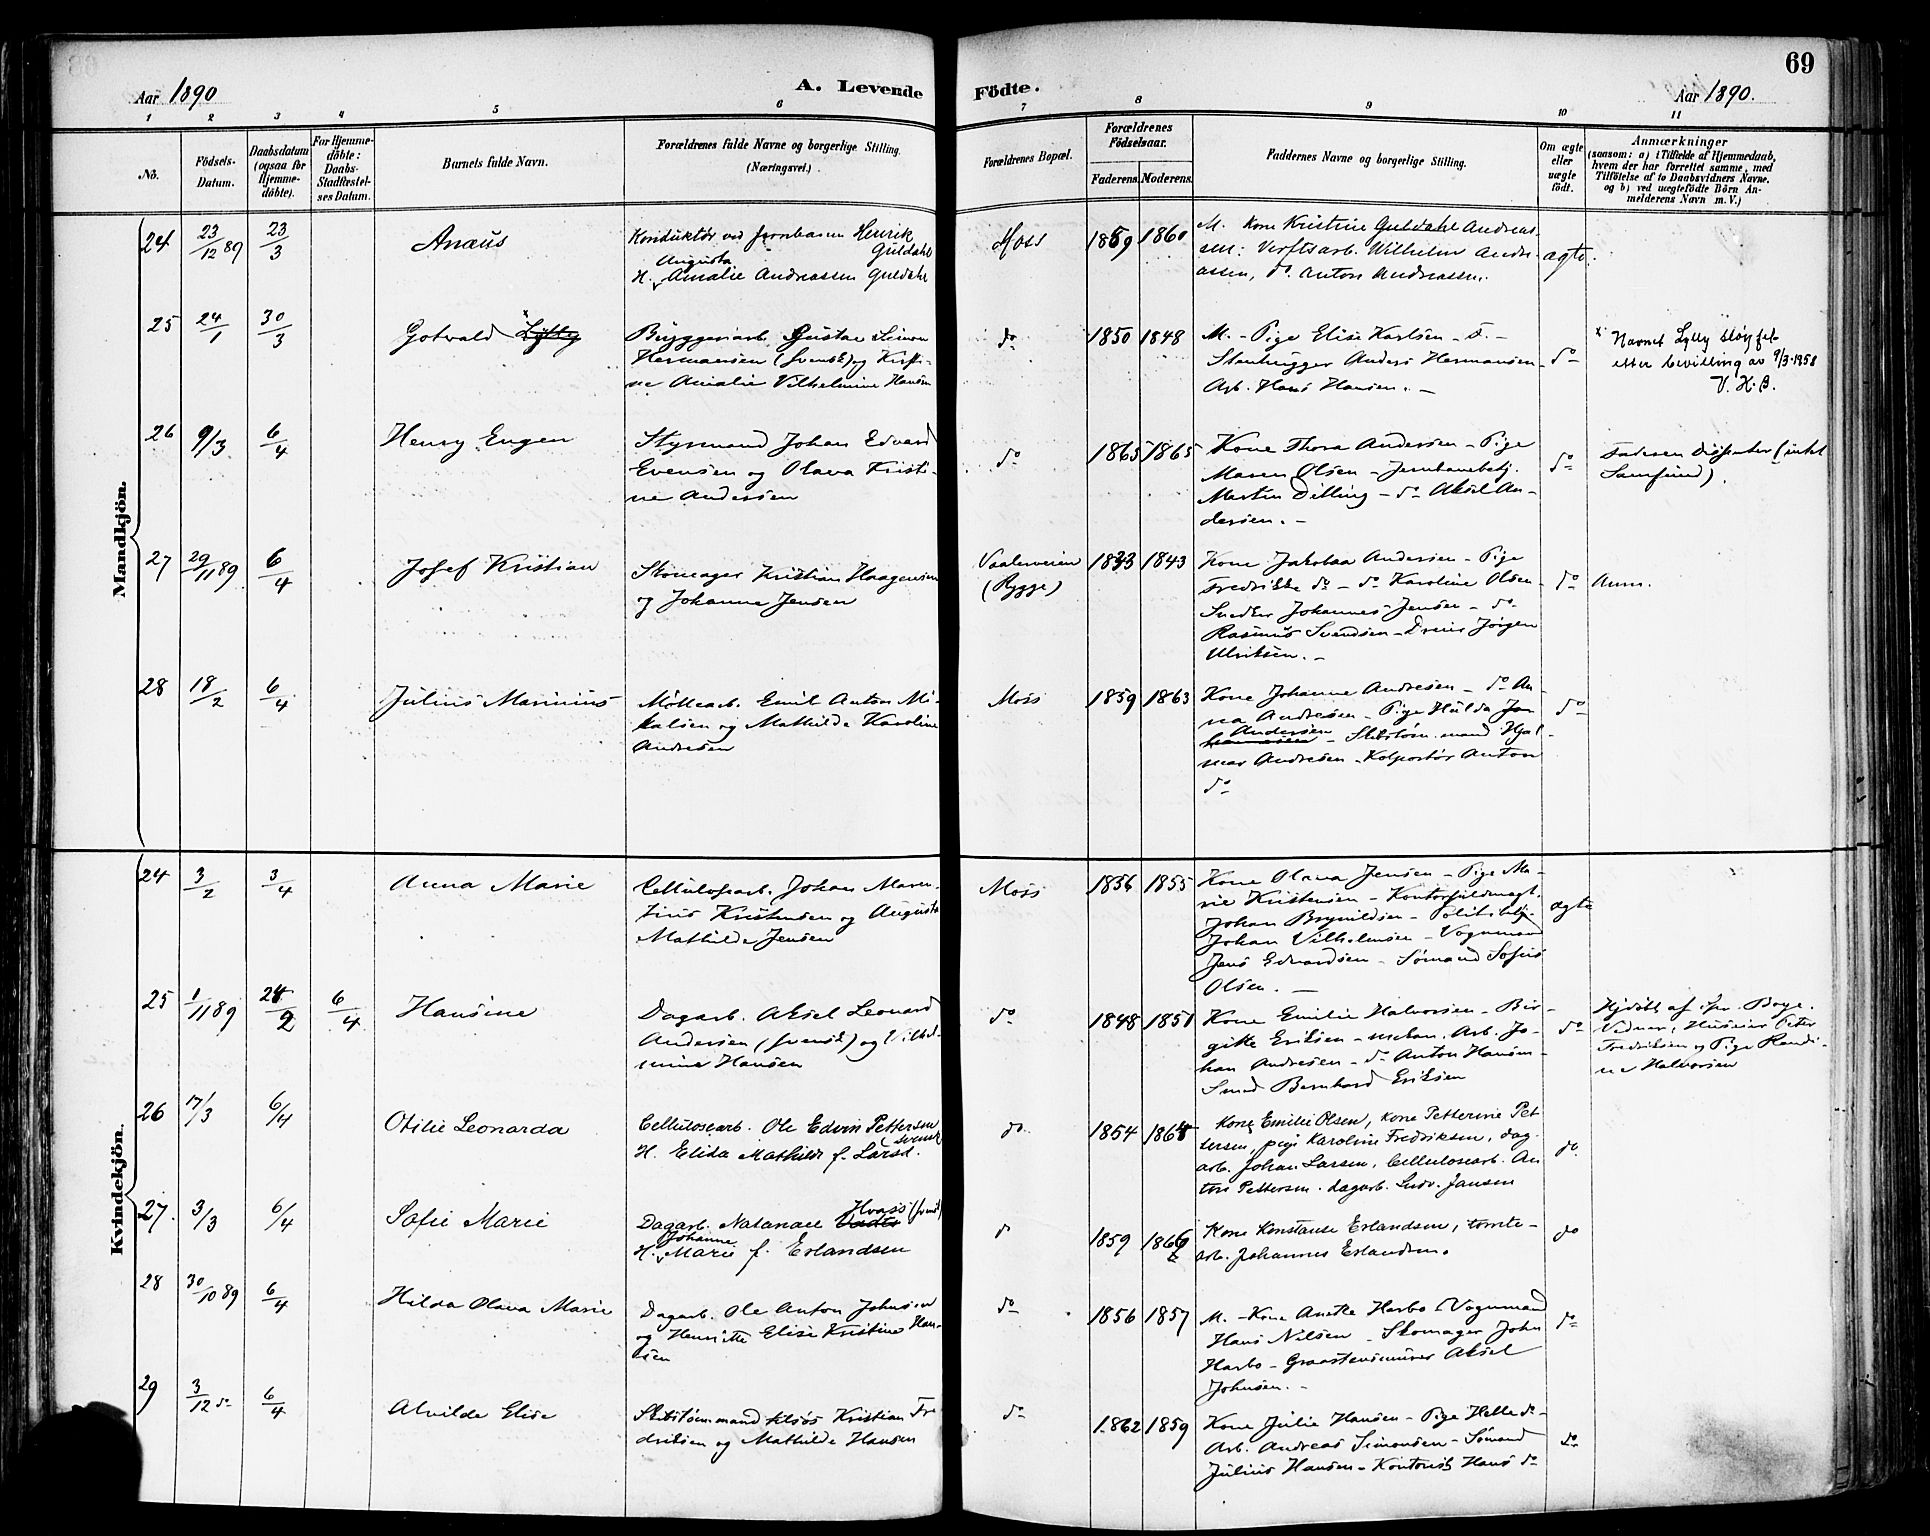 69
Aar 1890
A. Levende Födte.
Aar 1890.
1 2 3 4 5 6 7 8 9 10 11
No.
Födsels-
Datum.
Daabsdatum
(ogsaa for
Hjemme-
döbte).
For Hjemme-
döbte:
Daabs-
Stadfæstel-
ses Datum.
Barnets fulde Navn.
Forældrenes fulde Navne og borgerlige Stilling.
(Næringsvei.)
Forældrenes Bopæl.
Forældrenes
Födselsaar.
Faderens. Moderens.
Faddernes Navne og borgerlige Stilling.
Om ægte
eller
uægte
födt.
Anmærkninger
(saasom: a) i Tilfælde af Hjemmedaab,
hvem der har forrettet samme, med
Tilföielse af to Daabsvidners Navne.
og b) ved uægtefödte Börn An-
melderens Navn m.V.)
Mandkjön.
24 23/12 89 23/3 Anæus
Konduktör ved Jernbanen Henrik
Guldahl
Augusta
H. Amalie Andreassen Guldahl
Moss 1859 1860
M. Kone Kristine Guldahl Andreas
sen: Verftsarb. Wilhelm Andre
assen, do. Anton Andreassen.
ægte.
25 24/1 30/3 Gotvald x Lylly
Byggeriarb. Gustav Simon
Hermansen (svensk) og Kirsti-
ne Amalie Vilhelmine Hansen
do 1850 1848
M. - Pige Elise Karlsen - F. -
Stenhugger Anders Hermansen
Arb. Hans Hansen. -
do
x Navnet Lylly sløyfet
etter bevilling av 9/3-1958
V. H. B.
26 9/3 6/4 Henry Eugen
Styrmand Johan Edvard
Evensen og Olava Kristi-
ne Andersen
do 1865 1865
Kone Thora Andersen - Pige
Maren Olsen - Jernbanebetj.
Martin Dilling - do Aksel An-
dersen. -
do
Faderen Dissenter (intet
Samfund).
27 29/11 89 6/4 Josef Kristian
Skomager Kristian Haagensen
og Johanne Jensen
Vaalerveien
(Rygge)
1833 1843
Kone Jakobaa Andersen - Pige
Fredrikke do - do Karoline Olsen
Snedker Johannes Jensen - do
Rasmus Svendsen - Dreier Jørgen
Ulriksen. -
do Anm.
28 18/2 6/4 Julius Marinius
Møllearb. Emil Anton Mi-
kalsen og Mathilde Karoline
Andresen
Moss 1859 1863
Kone Johanne Andresen - do An-
na Andresen - Pige Hulda Jo-
hannesen Andersen - Skibstøm.mand Hjal-
mar Andresen - Kolportør Anton
do
do
Kvindekjön.
24 3/2 3/4 Anna Marie
Cellulosearb. Johan Maren-
tius Kristensen og Augusta
Mathilde Jensen
Moss 1856 1855
Kone Olava Jensen - Pige Ma-
rie Kristensen - Kontorfuldmægt.
Johan Brynildsen - Politibetj.
Johan Vilhelmsen - Vognmand
Jens Edvardsen - Sømand Sofus
Olsen. -
ægte
25 1/11 89 24/2 6/4 Hansine
Dagarb. Aksel Leonard
Andersen (svensk) og Vilhel-
mine Hansen
do 1848 1851
Kone Emilie Halvorsen - Bir-
gitte Eriksen - mekan. Arb. Jo-
han Andresen - do Anton Hansen -
Smed Bernhard Eriksen
do
Hjdøbt af Spr. Boye.
Vidner, Huseier Peter
Fredriksen og Pige Randi-
ne Halvorsen
26 17/3 6/4 Otilie Leonarda
Cellulosearb. Ole Edvin Pettersen
svensk
H. Elida Mathilde f. Larsd.
do 1854 1864
Kone Emilie Olsen, Kone Petterine Pet
tersen, pige Karoline Fredriksen, dag-
arb. Johan Larsen, Cellulosearb. An
ton Pettersen. dagarb. Ludv. Jansen
do.
27. 3/3 6/4 Sofie Marie
Dagarb. Natanael Hvass (svensk)
Johanne
H. Marie f. Erlandsen
do 1859 1866
Kone Konstanse Erlandsen, tomte-
arb. Johannes Erlandsen.
do
28 30/10 89 6/4 Hilda Olava Marie
Dagarb. Ole Anton Johnsen
og Henriette Elise Kristine Han-
sen
do 1856 1857
M. - Kone Anette Harbo - Vognmand
Hans Nilsen - Skomager John
Harbo - Graastensmurer Aksel
Johnsen. -
do
29 3/12 do 6/4 Alvilde Elise
Skibstømmand Kristian Fre
driksen og Mathilde Hansen
do 1862 1859
Kone Julie Hansen - Pige Helle do -
Arb. Andreas Simonsen - Sømand
Julius Hansen - Kontorist Hans do
do